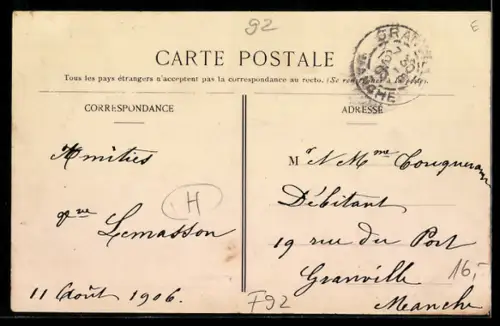 92
E
CARTE POSTALE
Tous les pays étrangers n'acceptent pas la correspondance au recto. (Se
CORRESPONDANCE
ADRESSE
GRANVILLE
MANCHE
Amitiés
Lemasson
11 Août 1906.
H
F92
Mr N Mme
Débitant
19 rue du Port
Granville
Manche
16,-